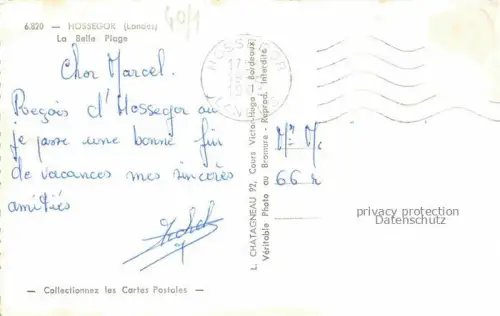 6.820 - HOSSEGOR (Landes)
La Belle Plage
60/1
Cher Marcel.
Reçois d'Hossegor où
je passe une bonne fin
de vacances mes sincères
amitiés
HOSSEGOR
L. CHATAGNEAU 92, Cours Victor-Hugo - Bordeaux
Véritable Photo au Bromure - Reprod. Interdite
Mr M.
66 r
privacy protection
Datenschutz
— Collectionnez les Cartes Postales —